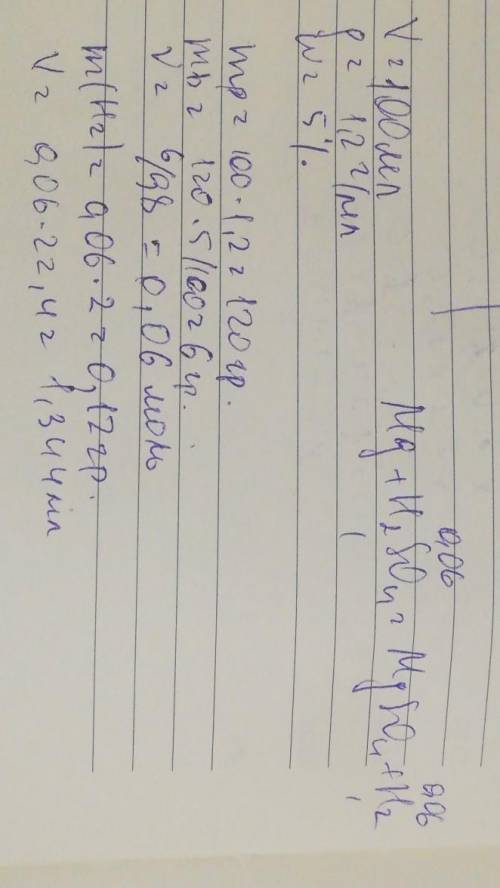 V = 100 мл
ρ = 1,2 г/мл
W = 5%
0,06 0,06
Mg + H₂SO₄ = MgSO₄ + H₂
1 1
mр = 100 · 1,2 = 120 гр.
mв = 120 · 5/100 = 6 гр.
ν = 6/98 = 0,06 моль
m(H₂) = 0,06 · 2 = 0,12 гр.
V = 0,06 · 22,4 = 1,344 мл